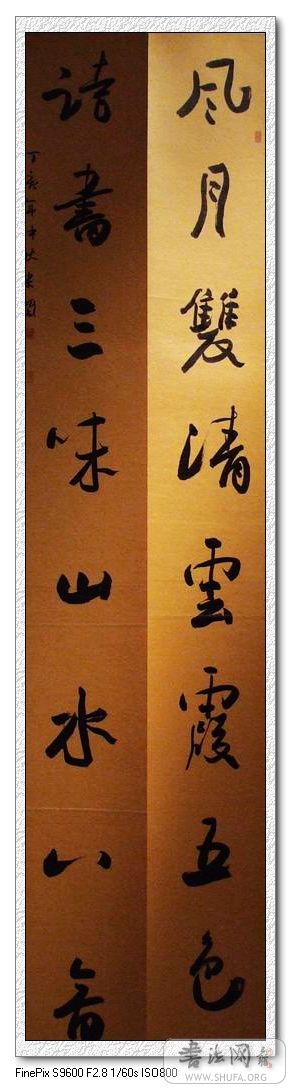 风月雙清雲霞五色
诗書三味山水八音
丁亥年
FinePix S9600 F2.8 1/60s ISO800
书法网
WWW.SHUFA.ORG